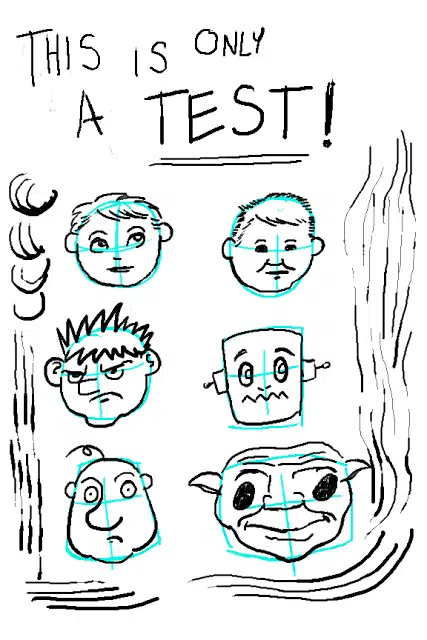 THIS IS ONLY
A TEST!